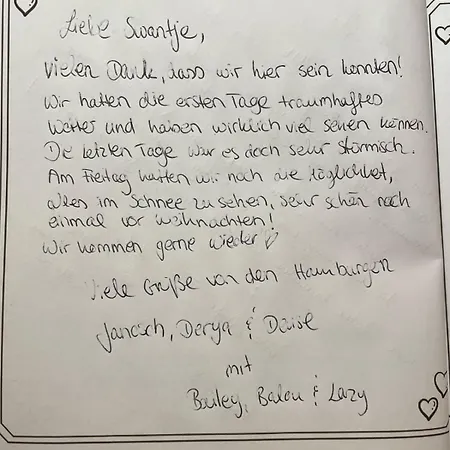 Liebe Swantje,
Vielen Dank, dass wir hier sein konnten!
Wir hatten die ersten Tage traumhaftes
Wetter und haben wirklich viel sehen können.
Die letzten Tage war es doch sehr stürmisch.
Am Freitag hatten wir noch die Möglichkeit,
alles im Schnee zu sehen, sehr schön noch
einmal vor Weihnachten!
Wir kommen gerne wieder ♡
Viele Grüße von den Hamburgern
Janosch, Derya &
mit
Bailey, Balou & Lazy